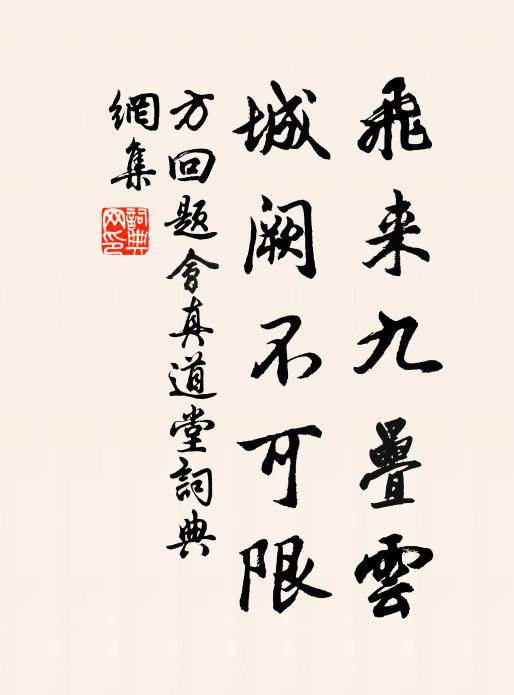 飛来九疊雲
城闕不可限
方回題會真道堂詞典
網集
詞典
网印